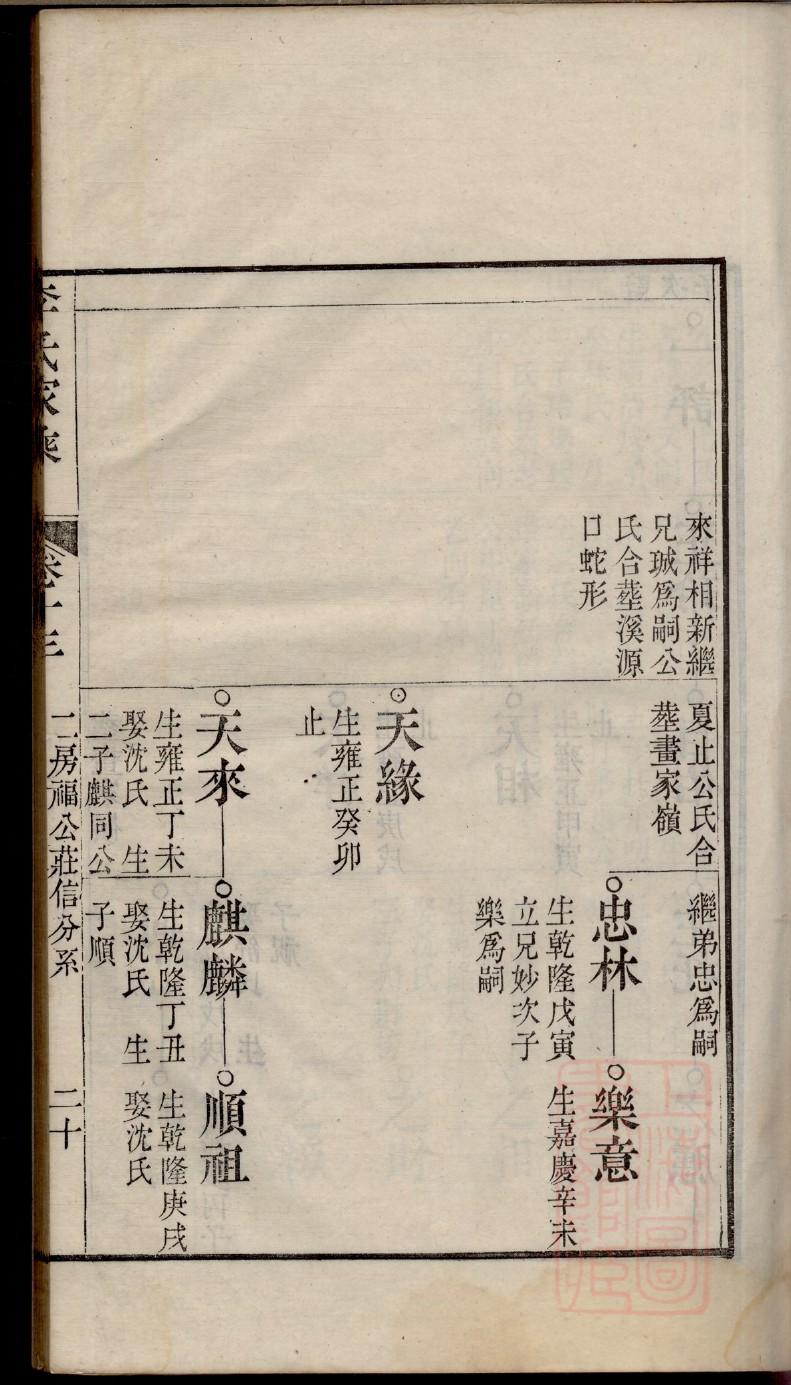 來祥相新繼
兄珹爲嗣公
氏合塟溪源
口蛇形
夏止公氏合
塟畫家嶺
繼弟忠爲嗣
忠林
生乾隆戊寅
立兄妙次子
樂爲嗣
樂意
生嘉慶辛未
天緣
生雍正癸卯
止
天來
生雍正丁未
娶沈氏 生
二子麒同公
麒麟
生乾隆丁丑
娶沈氏 生
子順
順祖
生乾隆庚戌
娶沈氏
李氏家乘
卷十三
二房福公莊信分系
二十